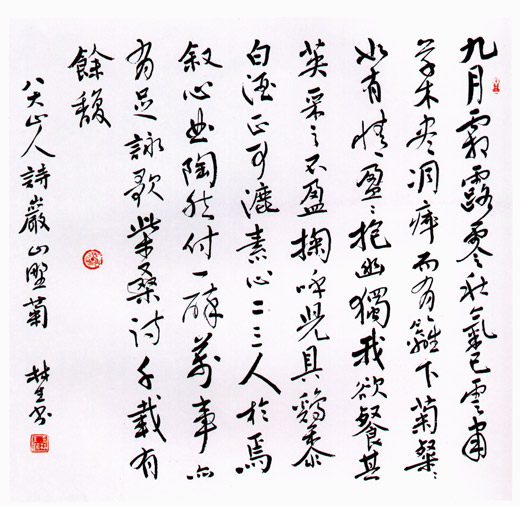 九月霜露零秋氣已云肅
草木尽凋瘁而有籬下菊粲々
如有情盈々抱幽獨我欲餐其
英采之不盈掬呼兒具鷄黍
白酒正可漉素心二三人於焉
叙心曲陶然付一醉萬事亦
有足詠歌柴桑詩千載有
餘馥
八大山人詩巖山野菊